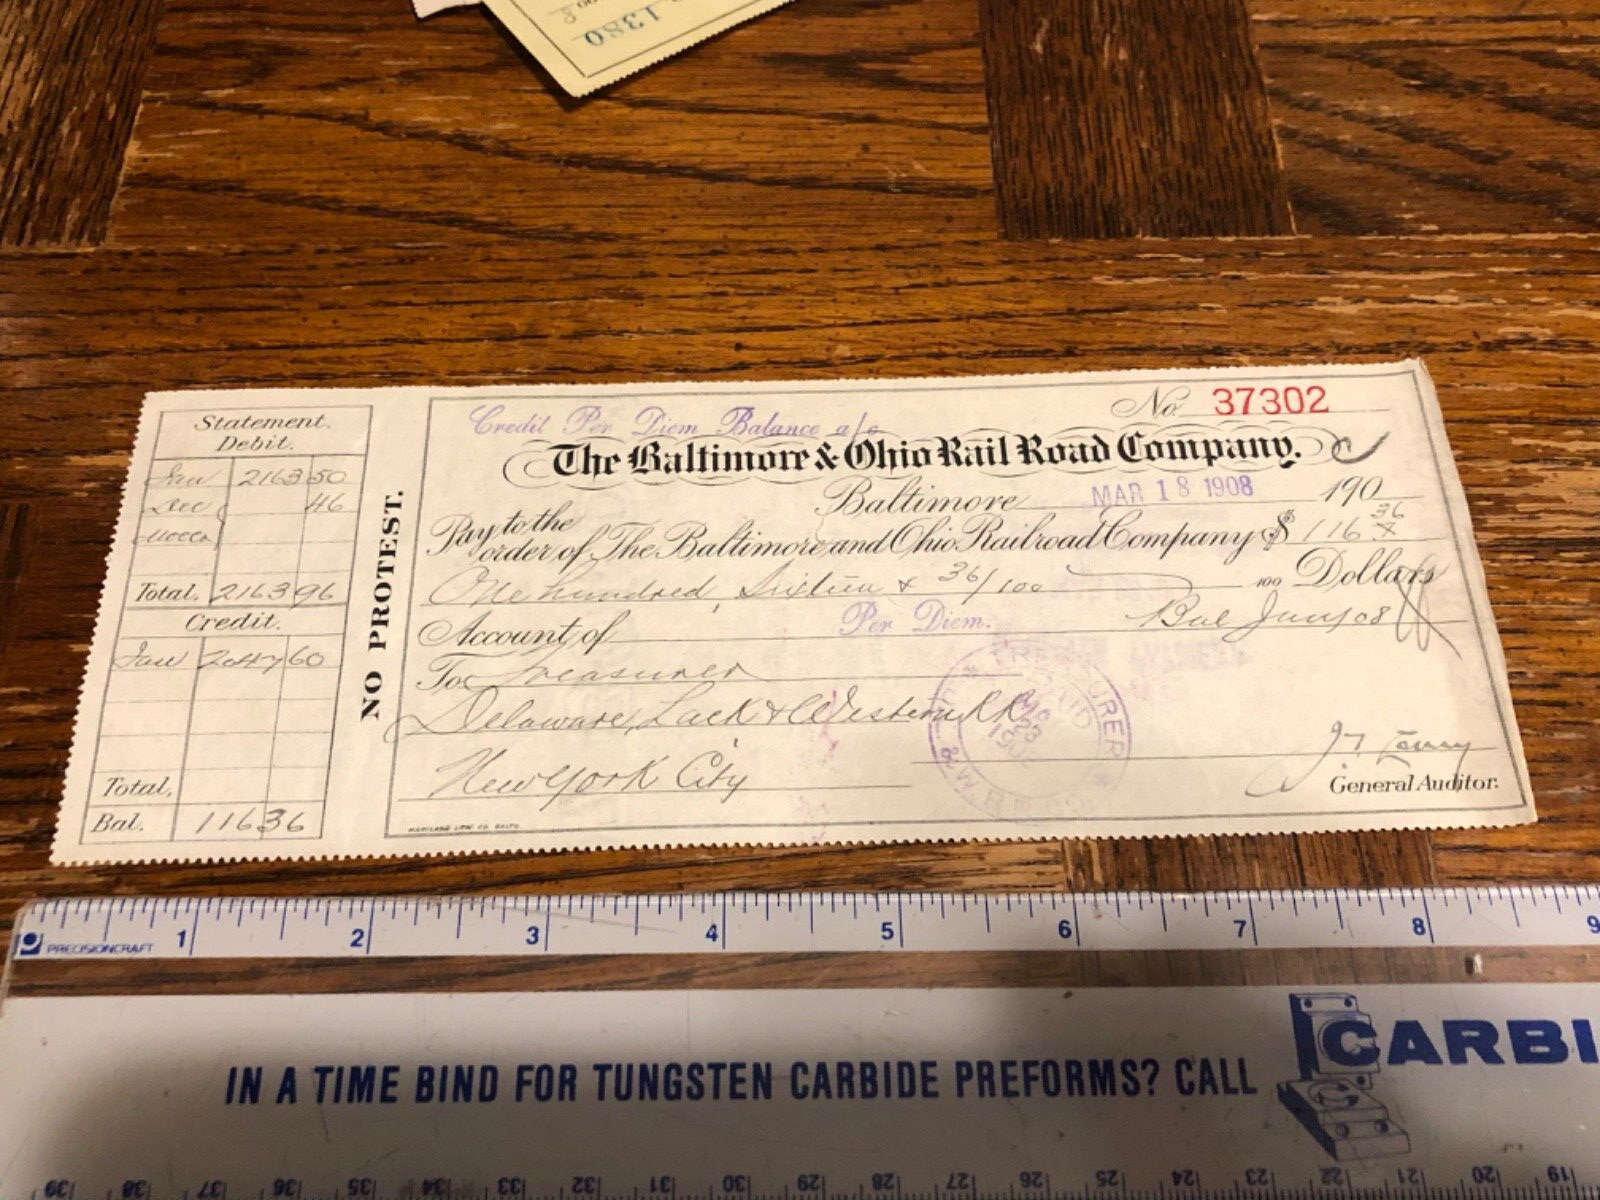 1380
Statement.
Debit.
Jan 2163 50
Dec 46
Total. 2163 96
Credit.
Jan 2047 60
Total,
Bal. 116 36
NO PROTEST.
No. 37302
Credit Per Diem Balance a/c
The Baltimore & Ohio Rail Road Company.
Baltimore MAR 18 1908 190
Pay to the
order of The Baltimore and Ohio Railroad Company $ 116 36
One hundred, Sixteen & 36/100 100 Dollars
Account of Per Diem. Bal Jany 08
To Treasurer
Delaware, Lack & Western RR
New York City
TREASURER
PAID
23
General Auditor.
MARYLAND LITH. CO. BALTO.
1 2 3 4 5 6 7 8 9
PRECISIONCRAFT
IN A TIME BIND FOR TUNGSTEN CARBIDE PREFORMS? CALL
CARBI
39 38 37 36 35 34 33 32 31 30 29 28 27 26 25 24 23 22 21 20 19